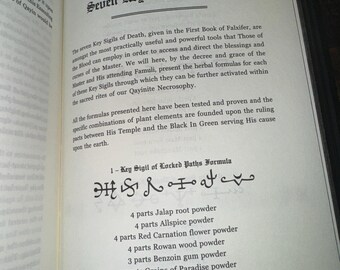 Seven
The seven Key Sigils of Death, given in the First Book of Falxifer, are
amongst the most practically useful and powerful tools that Those of
the Blood can employ in order to access and direct the blessings and
curses of the Master. We will here, by the decree and grace of the
Master and His attending Famuli, present the herbal formulas for each
of those Key Sigils through which they can be further activated within
the sacred rites of our Qayinite Necrosophy.
All the formulas presented here have been tested and proven and the
specific combinations of plant elements are founded upon the ruling
powers within His Temple and the Black In Green serving His cause
upon the earth.
1 – Key Sigil of Locked Paths Formula
4 parts Jalap root powder
4 parts Allspice powder
4 parts Red Carnation flower powder
4 parts Rowan wood powder
3 parts Benzoin gum powder
Grains of Paradise powder